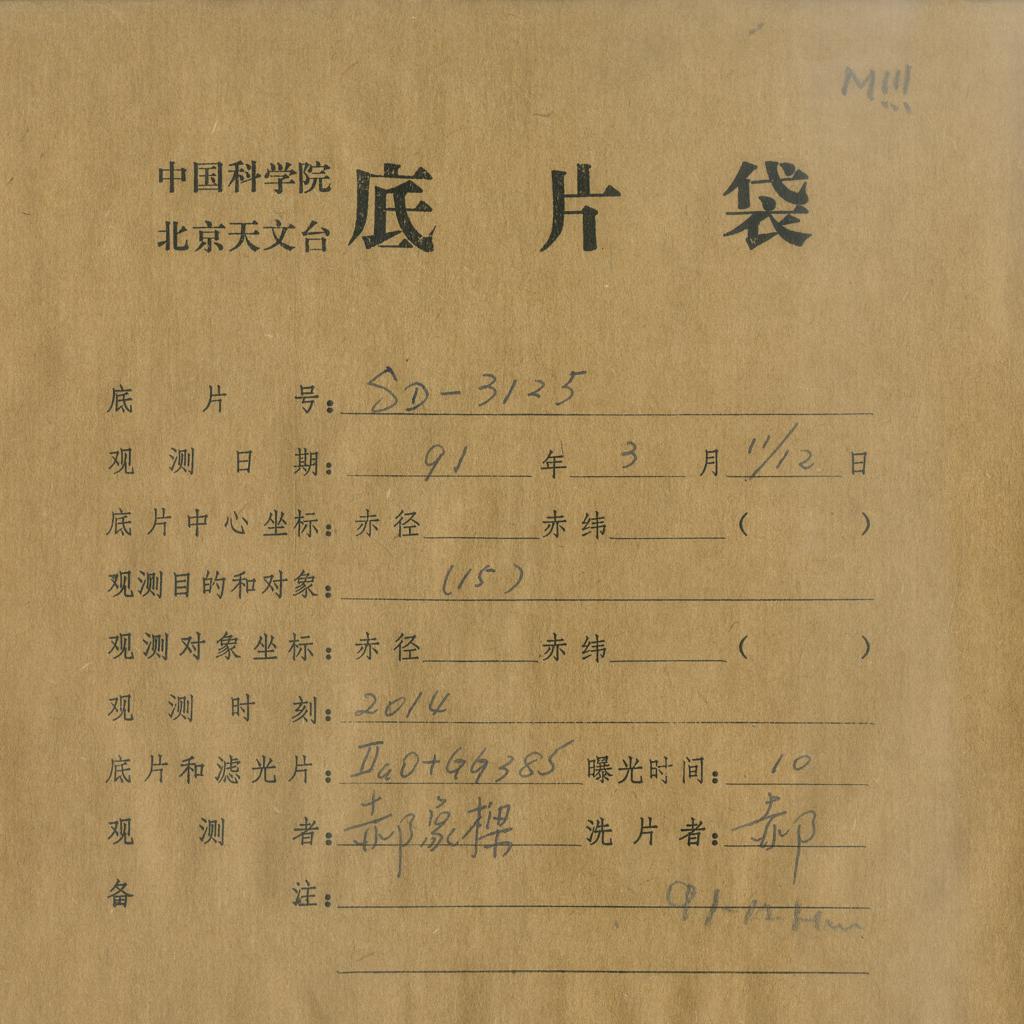 M111
中国科学院
北京天文台
底片袋
底片号：SD-3125
观测日期：91年3月11/12日
底片中心坐标：赤径 赤纬 （ ）
观测目的和对象：(15)
观测对象坐标：赤径 赤纬 （ ）
观测时刻：2014
底片和滤光片：IIaO+GG385 曝光时间：10
观测者：郝象樑 洗片者：郝
备注：